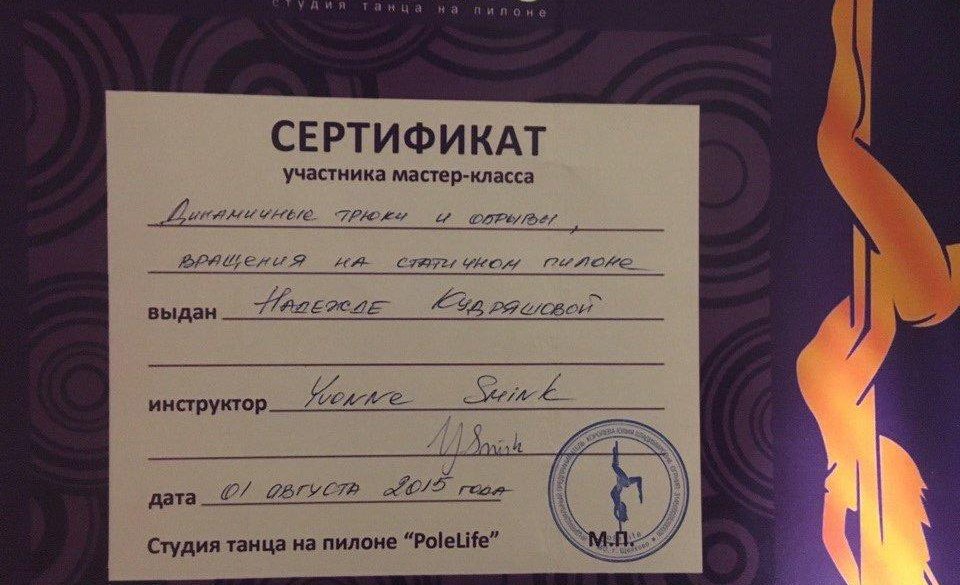 студия танца на пилоне
СЕРТИФИКАТ
участника мастер-класса
Динамичные трюки и обрывы,
вращения на статичном пилоне
выдан Надежде Кудряшовой
инструктор Yvonne Smink
YSmink
дата 01 августа 2015 года
М.П.
Студия танца на пилоне “PoleLife”